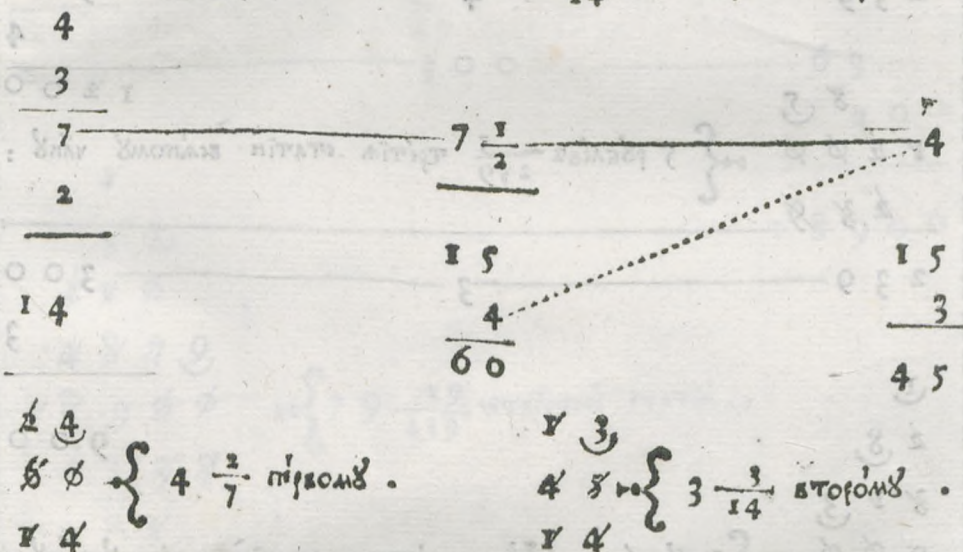 4
3
7 7 1/2 4
2
1 5 1 5
1 4 4 3
6 0 4 5
2 4 1 3
6 0 { 4 2/7 пе́рвомꙋ . 4 5 { 3 3/14 второ́мꙋ .
1 4 1 4